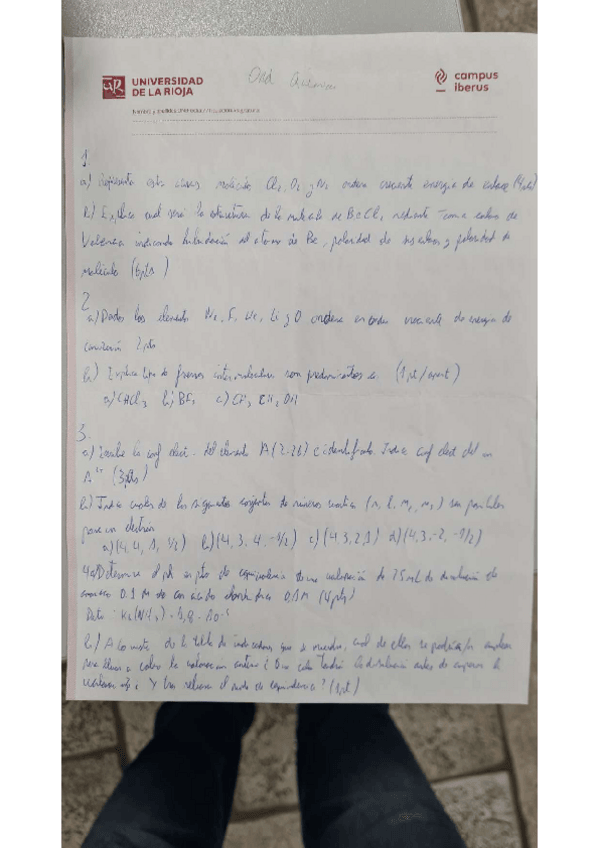 UNIVERSIDAD
DE LA RIOJA
campus
iberus
1
a) Representa molécula Cl2, O2 y N2 ordena creciente energía de enlace (4pts)
b) Explica cual será la estructura de la molécula de BeCl2 mediante enlace de
Valencia indicando hibridación del átomo de Be, polaridad de sus enlaces y polaridad de
molécula (6pts)
2
a) Dados los elementos Ne, F, Li y O ordena en orden creciente de energía de
2pts
b) Explica tipo de fuerzas intermoleculares son predominantes en (1pt/apart)
a) CHCl3 b) BF3 c) CH3CH2OH
3.
a) Escribe la conf elect. del elemento A (Z=26) e identifícalo. Indica conf elect del ion
(3pts)
b) Indica cuales de los siguientes conjuntos de números (n, l, m, ms) son posibles
para un electrón
a) (4, 4, 1, 1/2) b) (4, 3, 4, -1/2) c) (4, 3, 2, 1) d) (4, 3, -2, -1/2)
4a) Determina el ph en pto de equivalencia valoración de 25 ml de disolución de
amoniaco 0.1 M con ácido clorhídrico 0,1M (4pts)
Dato: Kb(NH3) = 1,8 · 10
b) A la vista de la tabla de indicadores que se muestra, cual de ellos se podría/n emplear
para llevar a cabo la valoración anterior? Que color tendrá la disolución antes de empezar la
valoración? Y tras rebasar el punto de equivalencia? (1pt)